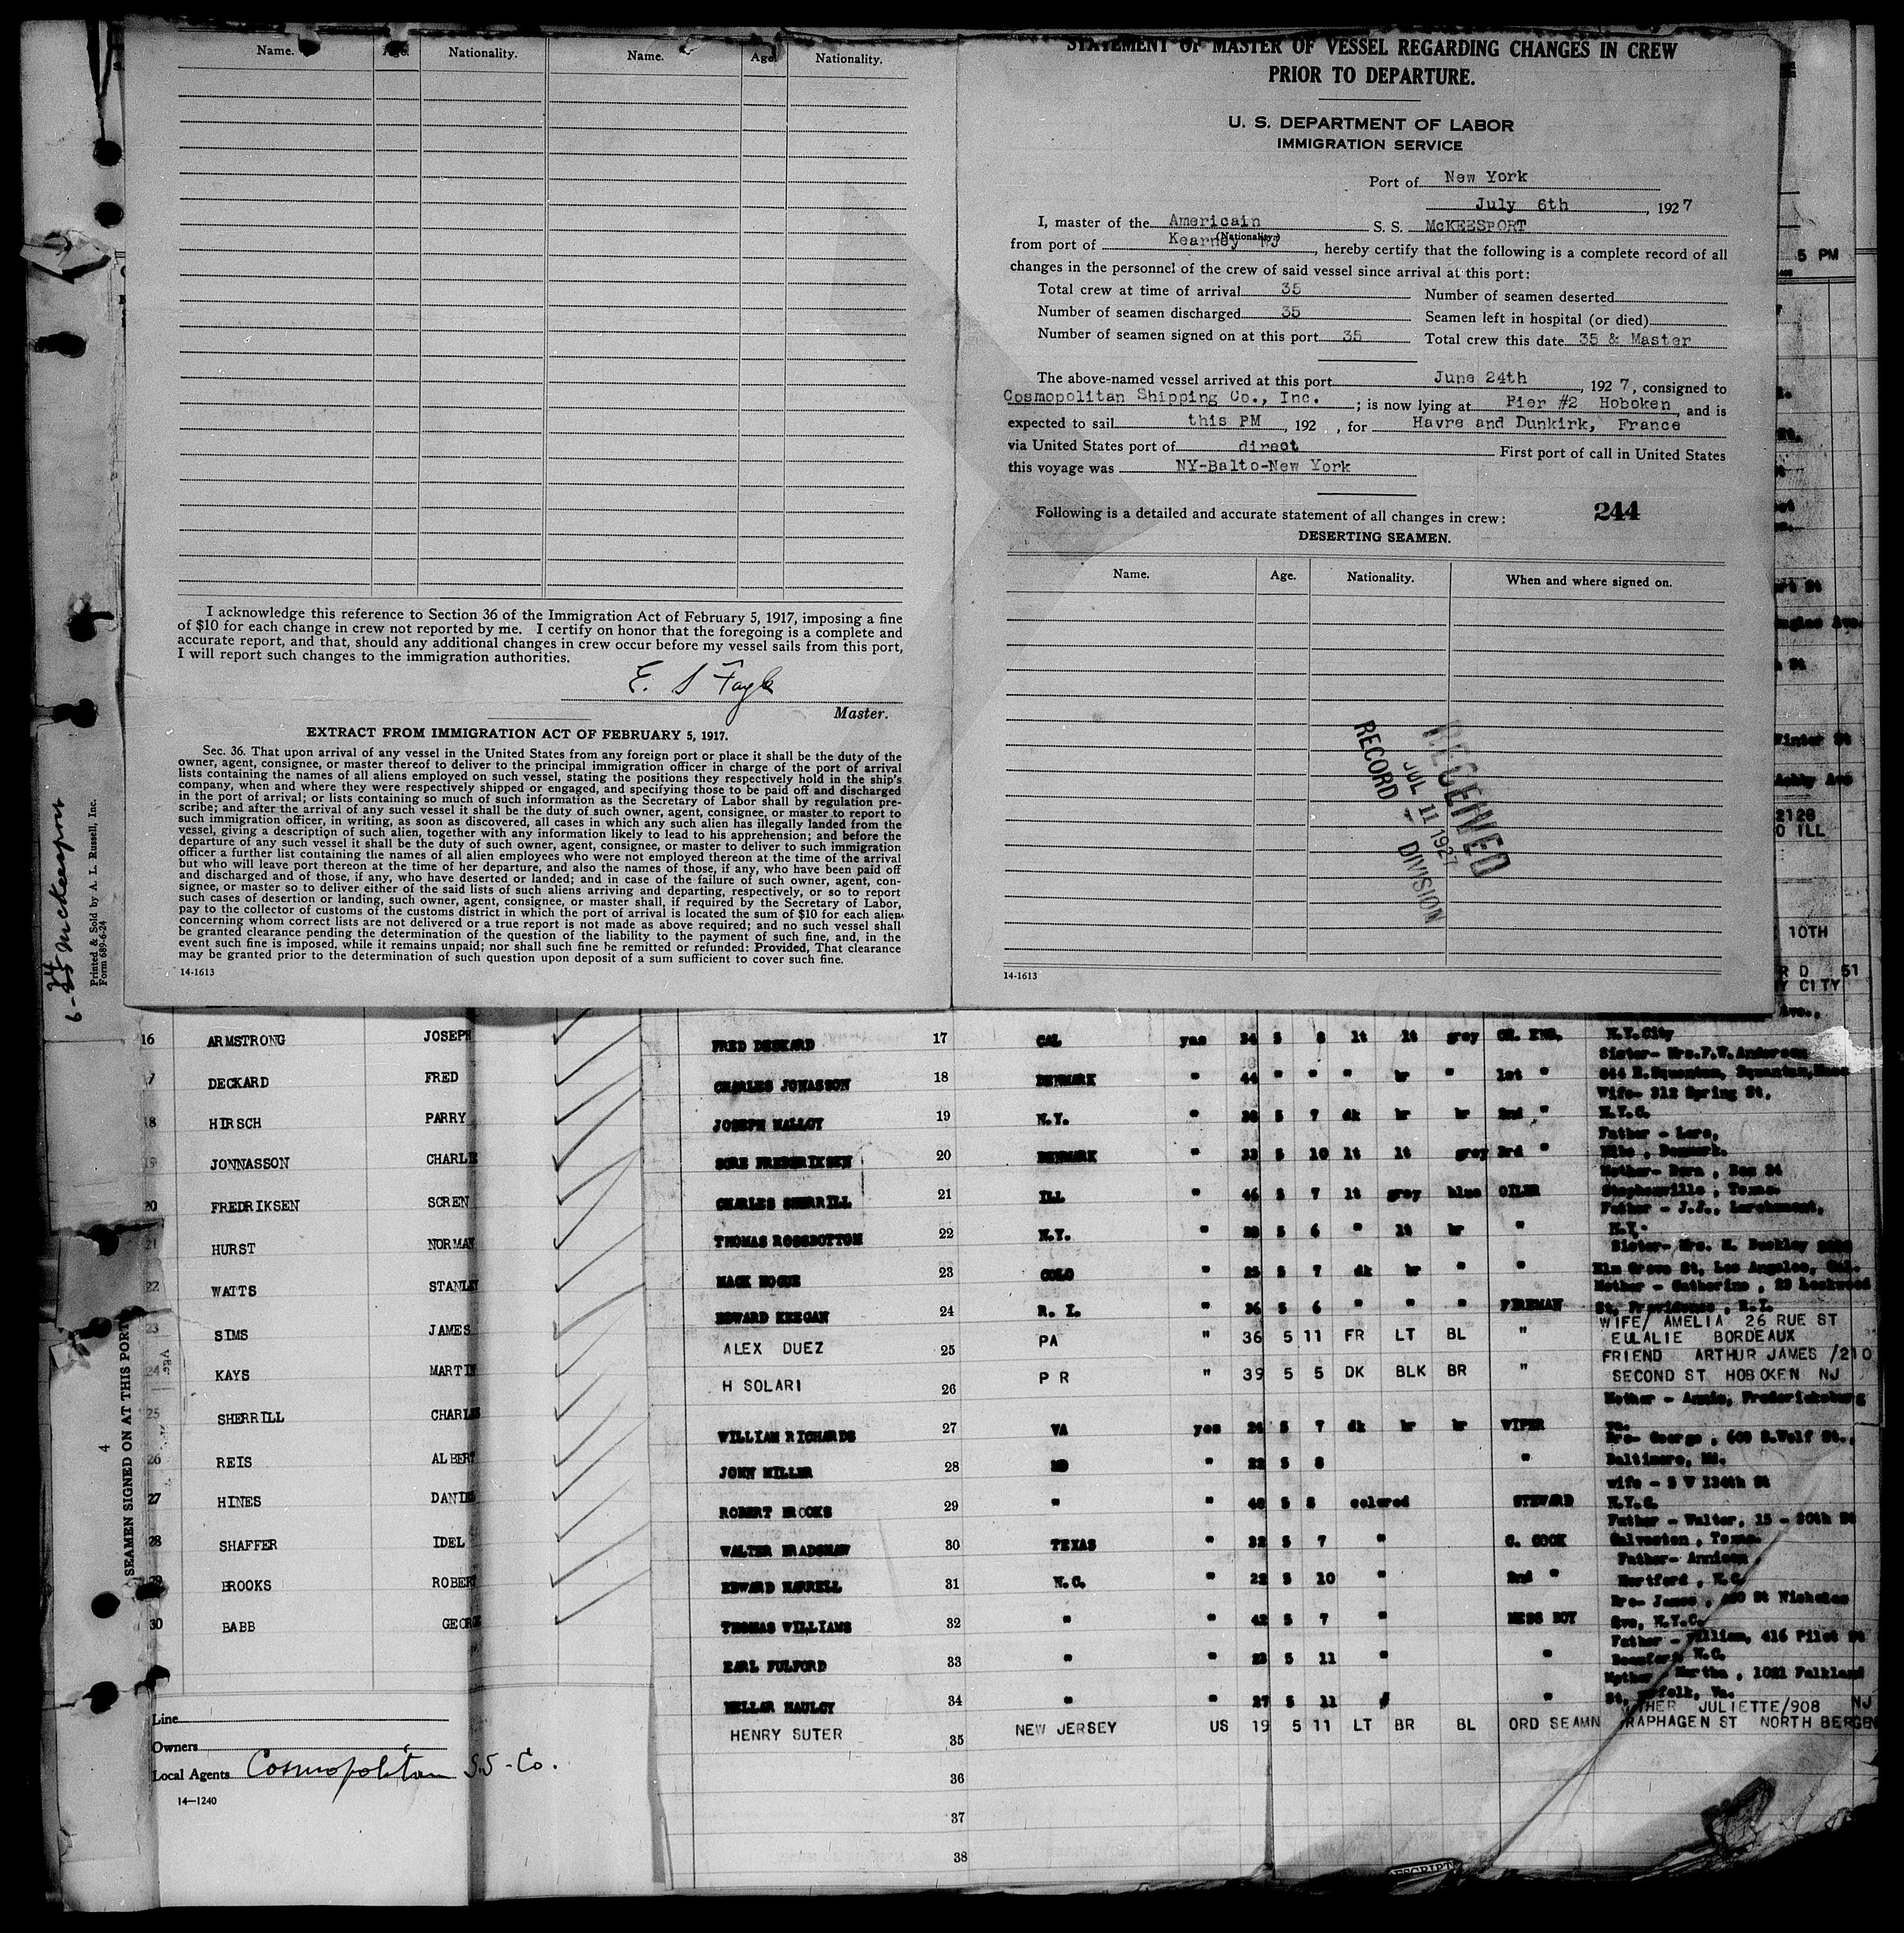 Name. Age. Nationality. Name. Age. Nationality.
I acknowledge this reference to Section 36 of the Immigration Act of February 5, 1917, imposing a fine
of $10 for each change in crew not reported by me. I certify on honor that the foregoing is a complete and
accurate report, and that, should any additional changes in crew occur before my vessel sails from this port,
I will report such changes to the immigration authorities.
Master.
EXTRACT FROM IMMIGRATION ACT OF FEBRUARY 5, 1917.
Sec. 36. That upon arrival of any vessel in the United States from any foreign port or place it shall be the duty of the
owner, agent, consignee, or master thereof to deliver to the principal immigration officer in charge of the port of arrival
lists containing the names of all aliens employed on such vessel, stating the positions they respectively hold in the ship's
company, when and where they were respectively shipped or engaged, and specifying those to be paid off and discharged
in the port of arrival; or lists containing so much of such information as the Secretary of Labor shall by regulation pre-
scribe; and after the arrival of any such vessel it shall be the duty of such owner, agent, consignee, or master to report to
such immigration officer, in writing, as soon as discovered, all cases in which any such alien has illegally landed from the
vessel, giving a description of such alien, together with any information likely to lead to his apprehension; and before the
departure of any such vessel it shall be the duty of such owner, agent, consignee, or master to deliver to such immigration
officer a further list containing the names of all alien employees who were not employed thereon at the time of the arrival
but who will leave port thereon at the time of her departure, and also the names of those, if any, who have been paid off
and discharged and of those, if any, who have deserted or landed; and in case of the failure of such owner, agent, con-
signee, or master so to deliver either of the said lists of such aliens arriving and departing, respectively, or so to report
such cases of desertion or landing, such owner, agent, consignee, or master shall, if required by the Secretary of Labor,
pay to the collector of customs of the customs district in which the port of arrival is located the sum of $10 for each alien
concerning whom correct lists are not delivered or a true report is not made as above required; and no such vessel shall
be granted clearance pending the determination of the question of the liability to the payment of such fine, and, in the
event such fine is imposed, while it remains unpaid; nor shall such fine be remitted or refunded: Provided, That clearance
may be granted prior to the determination of such question upon deposit of a sum sufficient to cover such fine.
14-1613
STATEMENT OF MASTER OF VESSEL REGARDING CHANGES IN CREW
PRIOR TO DEPARTURE.
U. S. DEPARTMENT OF LABOR
IMMIGRATION SERVICE
Port of New York
July 6th, 1927
I, master of the Americain S. S. McKEESPORT
(Nationality.)
from port of Kearney NJ, hereby certify that the following is a complete record of all
changes in the personnel of the crew of said vessel since arrival at this port:
Total crew at time of arrival 35 Number of seamen deserted
Number of seamen discharged 35 Seamen left in hospital (or died)
Number of seamen signed on at this port 35 Total crew this date 35 & Master
The above-named vessel arrived at this port June 24th, 1927, consigned to
Cosmopolitan Shipping Co., Inc. ; is now lying at Pier #2 Hoboken, and is
expected to sail this PM, 192 , for Havre and Dunkirk, France
via United States port of direct First port of call in United States
this voyage was NY-Balto-New York
Following is a detailed and accurate statement of all changes in crew: 244
DESERTING SEAMEN.
Name. Age. Nationality. When and where signed on.
RECEIVED
JUL 11 1927
RECORD DIVISION
14-1613
5 PM
2128
O ILL
10TH
R D 51
Y CITY
Ave.,
6-24 McKeesport
Printed & Sold by A. L. Russell, Inc.
Form 689-6-24
SEAMEN SIGNED ON AT THIS PORT
4
16 ARMSTRONG JOSEPH
17 DECKARD FRED
18 HIRSCH PARRY
19 JONNASSON CHARLE
20 FREDRIKSEN SCREN
21 HURST NORMAN
22 WATTS STANLEY
23 SIMS JAMES
24 KAYS MARTIN
25 SHERRILL CHARLES
26 REIS ALBERT
27 HINES DANIEL
28 SHAFFER IDEL
29 BROOKS ROBERT
30 BABB GEORGE
Line
Owners
Local Agents Cosmopolitan S.S-Co.
14—1240
FRED DECKARD 17 CAL yes 34 5 8 lt lt grey CH. ENG. N.Y.City
Sister- Mrs.F.W.Anderson
CHARLES JONASSON 18 DENMARK " 44 " " " br " 1st " 644 E.Squantum, Squantum,Mass
Wife- 312 Spring St.
JOSEPH MALLOY 19 N.Y. " 5 7 dk br br 2nd " N.Y.C.
Father - Lars,
SORE FREDERIKSEN 20 DENMARK " 33 5 10 lt lt grey 3rd " Denmark.
Mother- Dora, Box 84
CHARLES SHERRILL 21 ILL " 46 5 7 lt grey blue OILER Stephenville, Texas.
Father - J.J., Larchmont,
THOMAS ROSSBOTTOM 22 N.Y. " 5 6 " lt br " N.Y.
Sister- Mrs. M. Buckley
MACK HOGUE 23 COLO " 25 5 7 dk br " " Elm Grove St, Los Angeles, Cal.
Mother - Catherine, 29 Lockwood
EDWARD KEEGAN 24 R. I. " 36 5 6 " " " FIREMAN St, Providence, R.I.
WIFE/ AMELIA 26 RUE ST
ALEX DUEZ 25 PA " 36 5 11 FR LT BL " EULALIE BORDEAUX
FRIEND ARTHUR JAMES /210
H SOLARI 26 P R " 39 5 5 DK BLK BR " SECOND ST HOBOKEN NJ
Mother - Annie, Fredericksburg
WILLIAM RICHARDS 27 VA yes 24 5 7 dk br br WIPER Va.
Bro- George, 609 S.Wolf St.,
JOHN MILLER 28 MD " 22 5 8 " Baltimore, Md.
wife - 5 W 134th St
ROBERT BROOKS 29 " " 40 5 8 colored STEWARD N.Y.C.
Father - Walter, 15 - 30th St
WALTER BRADSHAW 30 TEXAS " 32 5 7 " C. COOK Galveston, Texas.
Father- Annison,
EDWARD HARRELL 31 N.C. " 22 5 10 " 2nd " Hertford, N.C.
Bro- James, 400 St Nicholas
THOMAS WILLIAMS 32 " " 42 5 7 " MESS BOY Ave, N.Y.C.
Father - William, 416 Pilot St
EARL FULFORD 33 " " 23 5 11 " " Beaufort, N.C.
Mother - Martha, 1021 Falkland
34 " " 27 5 11 " " St, Norfolk, Va.
MOTHER JULIETTE/908 NJ
HENRY SUTER 35 NEW JERSEY US 19 5 11 LT BR BL ORD SEAMN RAPHAGEN ST NORTH BERGEN
36
37
38